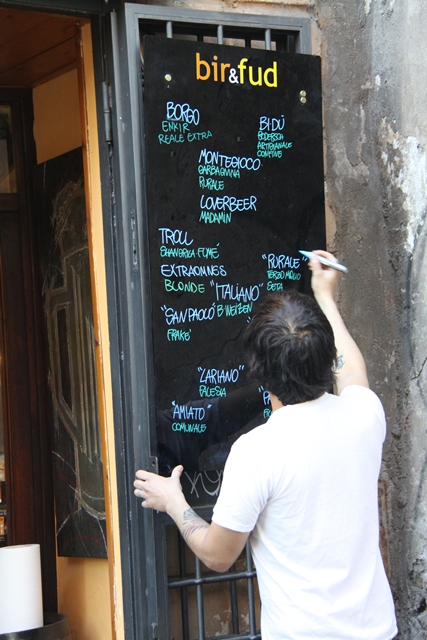 bir&fud
BORGO
ENKIR
REALE EXTRA
BI-DÙ
RODERSCH
ARTIGIANALE
CONFINE
MONTEGIOCO
GARBAGNINA
RURALE
LOVERBEER
MADAMIN
TROLL
SHANGRILA FUMÉ
EXTRAOMNES
BLONDE
"RURALE"
TERZO MIGLIO
SETA
"ITALIANO"
B. WEIZEN
"SAN PAOLO"
FRAKE'
"LARIANO"
FALESIA
"AMIATO"
COMUNALE